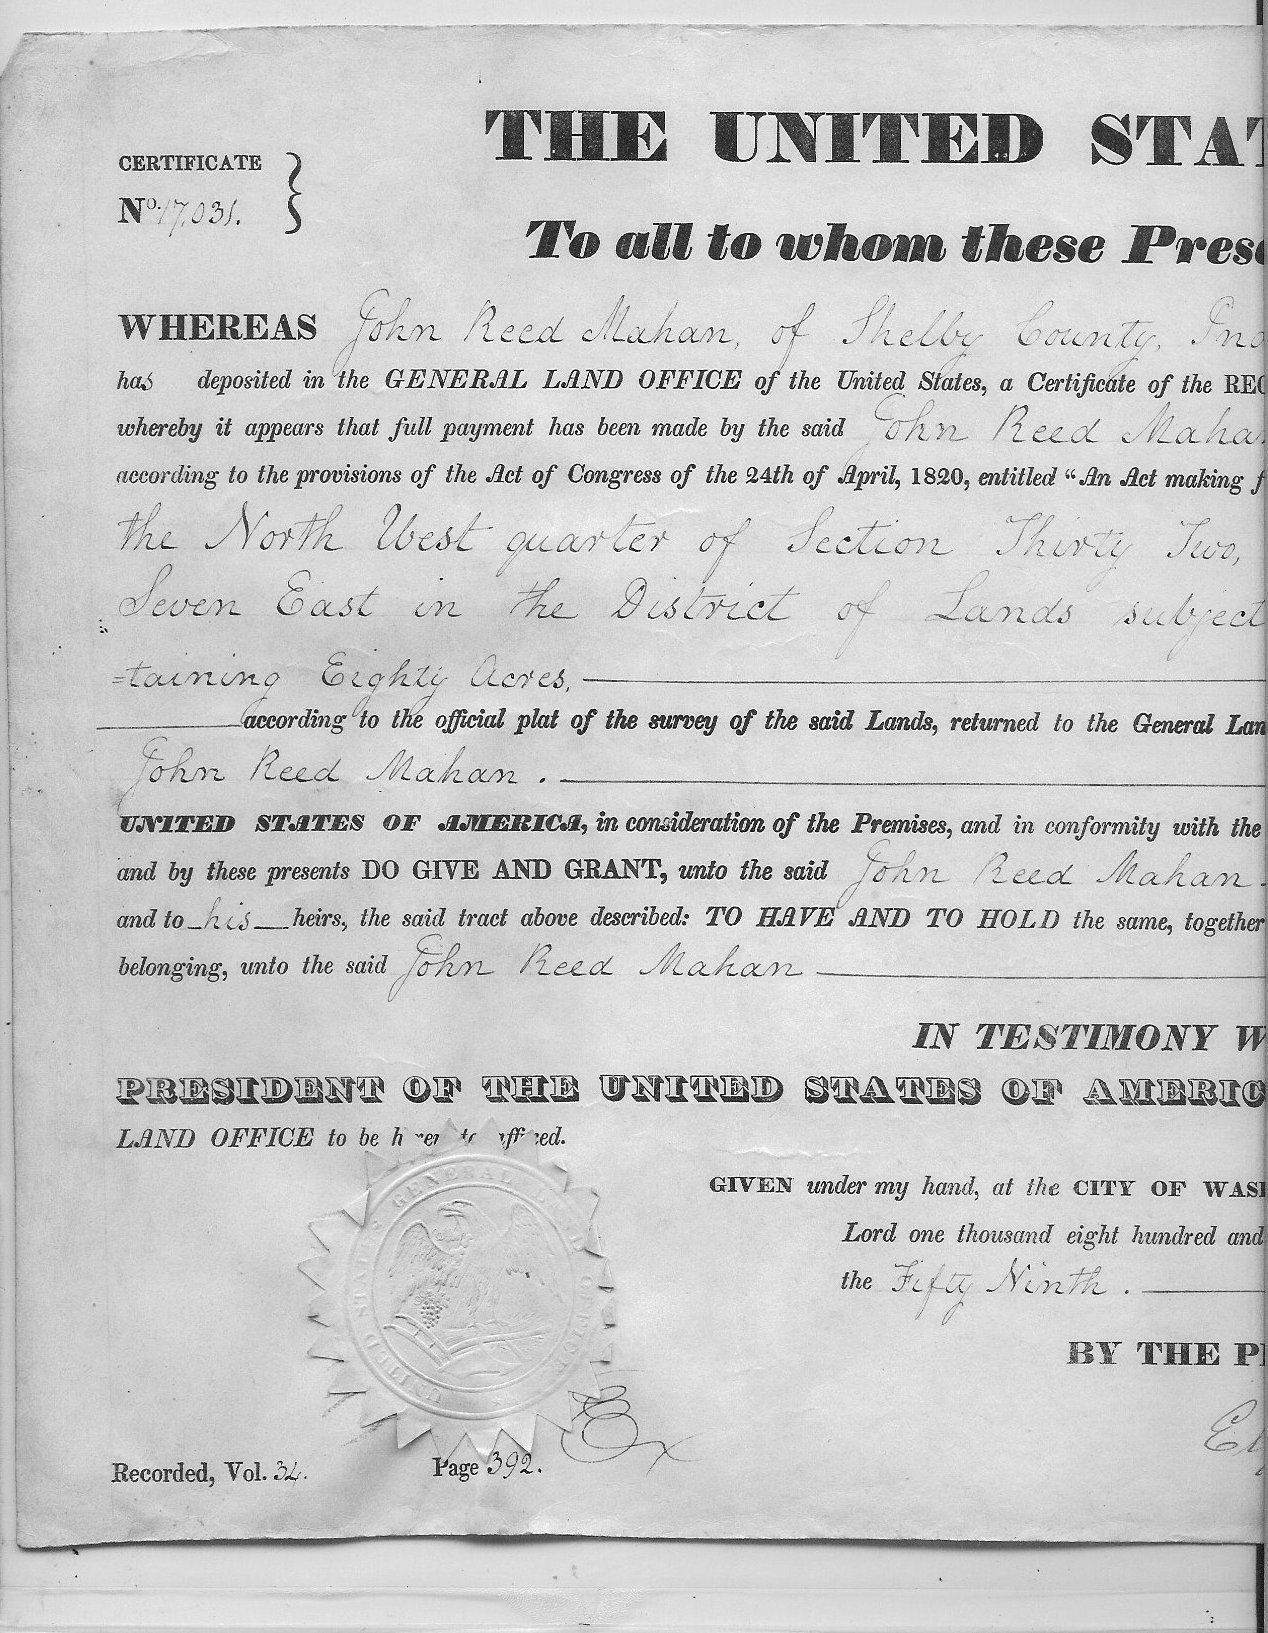 THE UNITED STAT
CERTIFICATE
No. 17,031.
To all to whom these Prese
WHEREAS John Reed Mahan, of Shelby County, Ind
has deposited in the GENERAL LAND OFFICE of the United States, a Certificate of the REG
whereby it appears that full payment has been made by the said John Reed Maha
according to the provisions of the Act of Congress of the 24th of April, 1820, entitled "An Act making f
the North West quarter of Section Thirty Two,
Seven East in the District of Lands subject
=taining Eighty Acres,
according to the official plat of the survey of the said Lands, returned to the General Lan
John Reed Mahan.
UNITED STATES OF AMERICA, in consideration of the Premises, and in conformity with the
and by these presents DO GIVE AND GRANT, unto the said John Reed Mahan
and to his heirs, the said tract above described: TO HAVE AND TO HOLD the same, together
belonging, unto the said John Reed Mahan
IN TESTIMONY W
PRESIDENT OF THE UNITED STATES OF AMERIC
LAND OFFICE to be
GIVEN under my hand, at the CITY OF WASH
Lord one thousand eight hundred and
the Fifty Ninth.
BY THE PR
UNITED STATES GENERAL
Recorded, Vol. 34. Page 392.